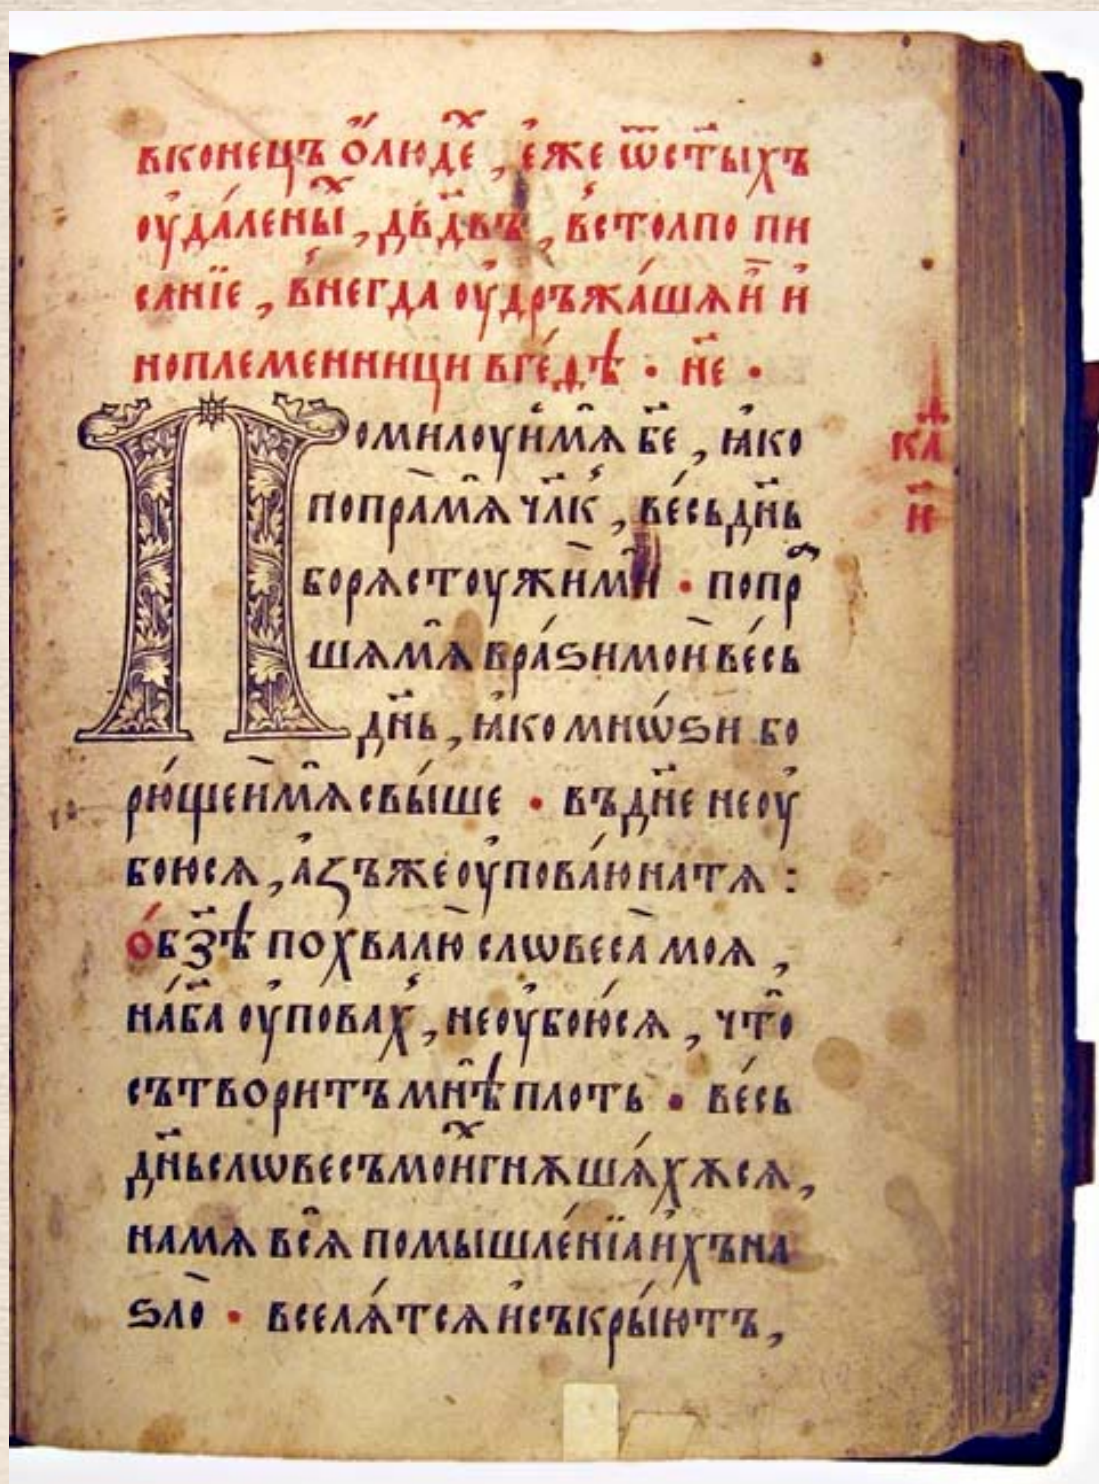 вконецъ ѻ҆́люде́ⷯ , е҆́же ѿст҃ыхъ
оу҆да́лены́ⷯ , дв҃дв꙽ъ , в꙽столпо пи
са́нїе , в꙽негда оу҆дръжа́шѧи҆̀ и҆
ноплеменници вге́ѳѣ · н҃е ·
Помилоуи҆мѧ̑ бж҃е , ꙗ҆́ко
попра̀мѧ̑ чл҃к꙽ , ве́сьдн҃ь
борѧстоужи́мѝ · попраⷲ
шѧмѧ̑ вра́ѕимои҆̀ ве́сь
дн҃ь , ꙗ҆́ко мнѡ́ѕи бо
рю́щеи҆̀мѧ̑ свы́ше · въдн҃е неоу҆
бою́сѧ , а҆́ꙁъже оу҆пова́ю натѧ̀ :
ѻ҆́бз҃ѣ похвалю̀ слѡвеса̀ моѧ̀ ,
на́бг҃а оу҆пова́х꙽ , неоу҆бою́сѧ , что̑
сътворитъ мн̑ѣ пло́ть · ве́сь
дн҃ь слѡвесъ мои́ⷯ гнѫша́хѫсѧ ,
намѧ̀ всѧ̑ помышле́нїа и҆́хъ на
ѕло̀ · вселѧ́тсѧ и҆съкры́ютъ ,
ка
и҃